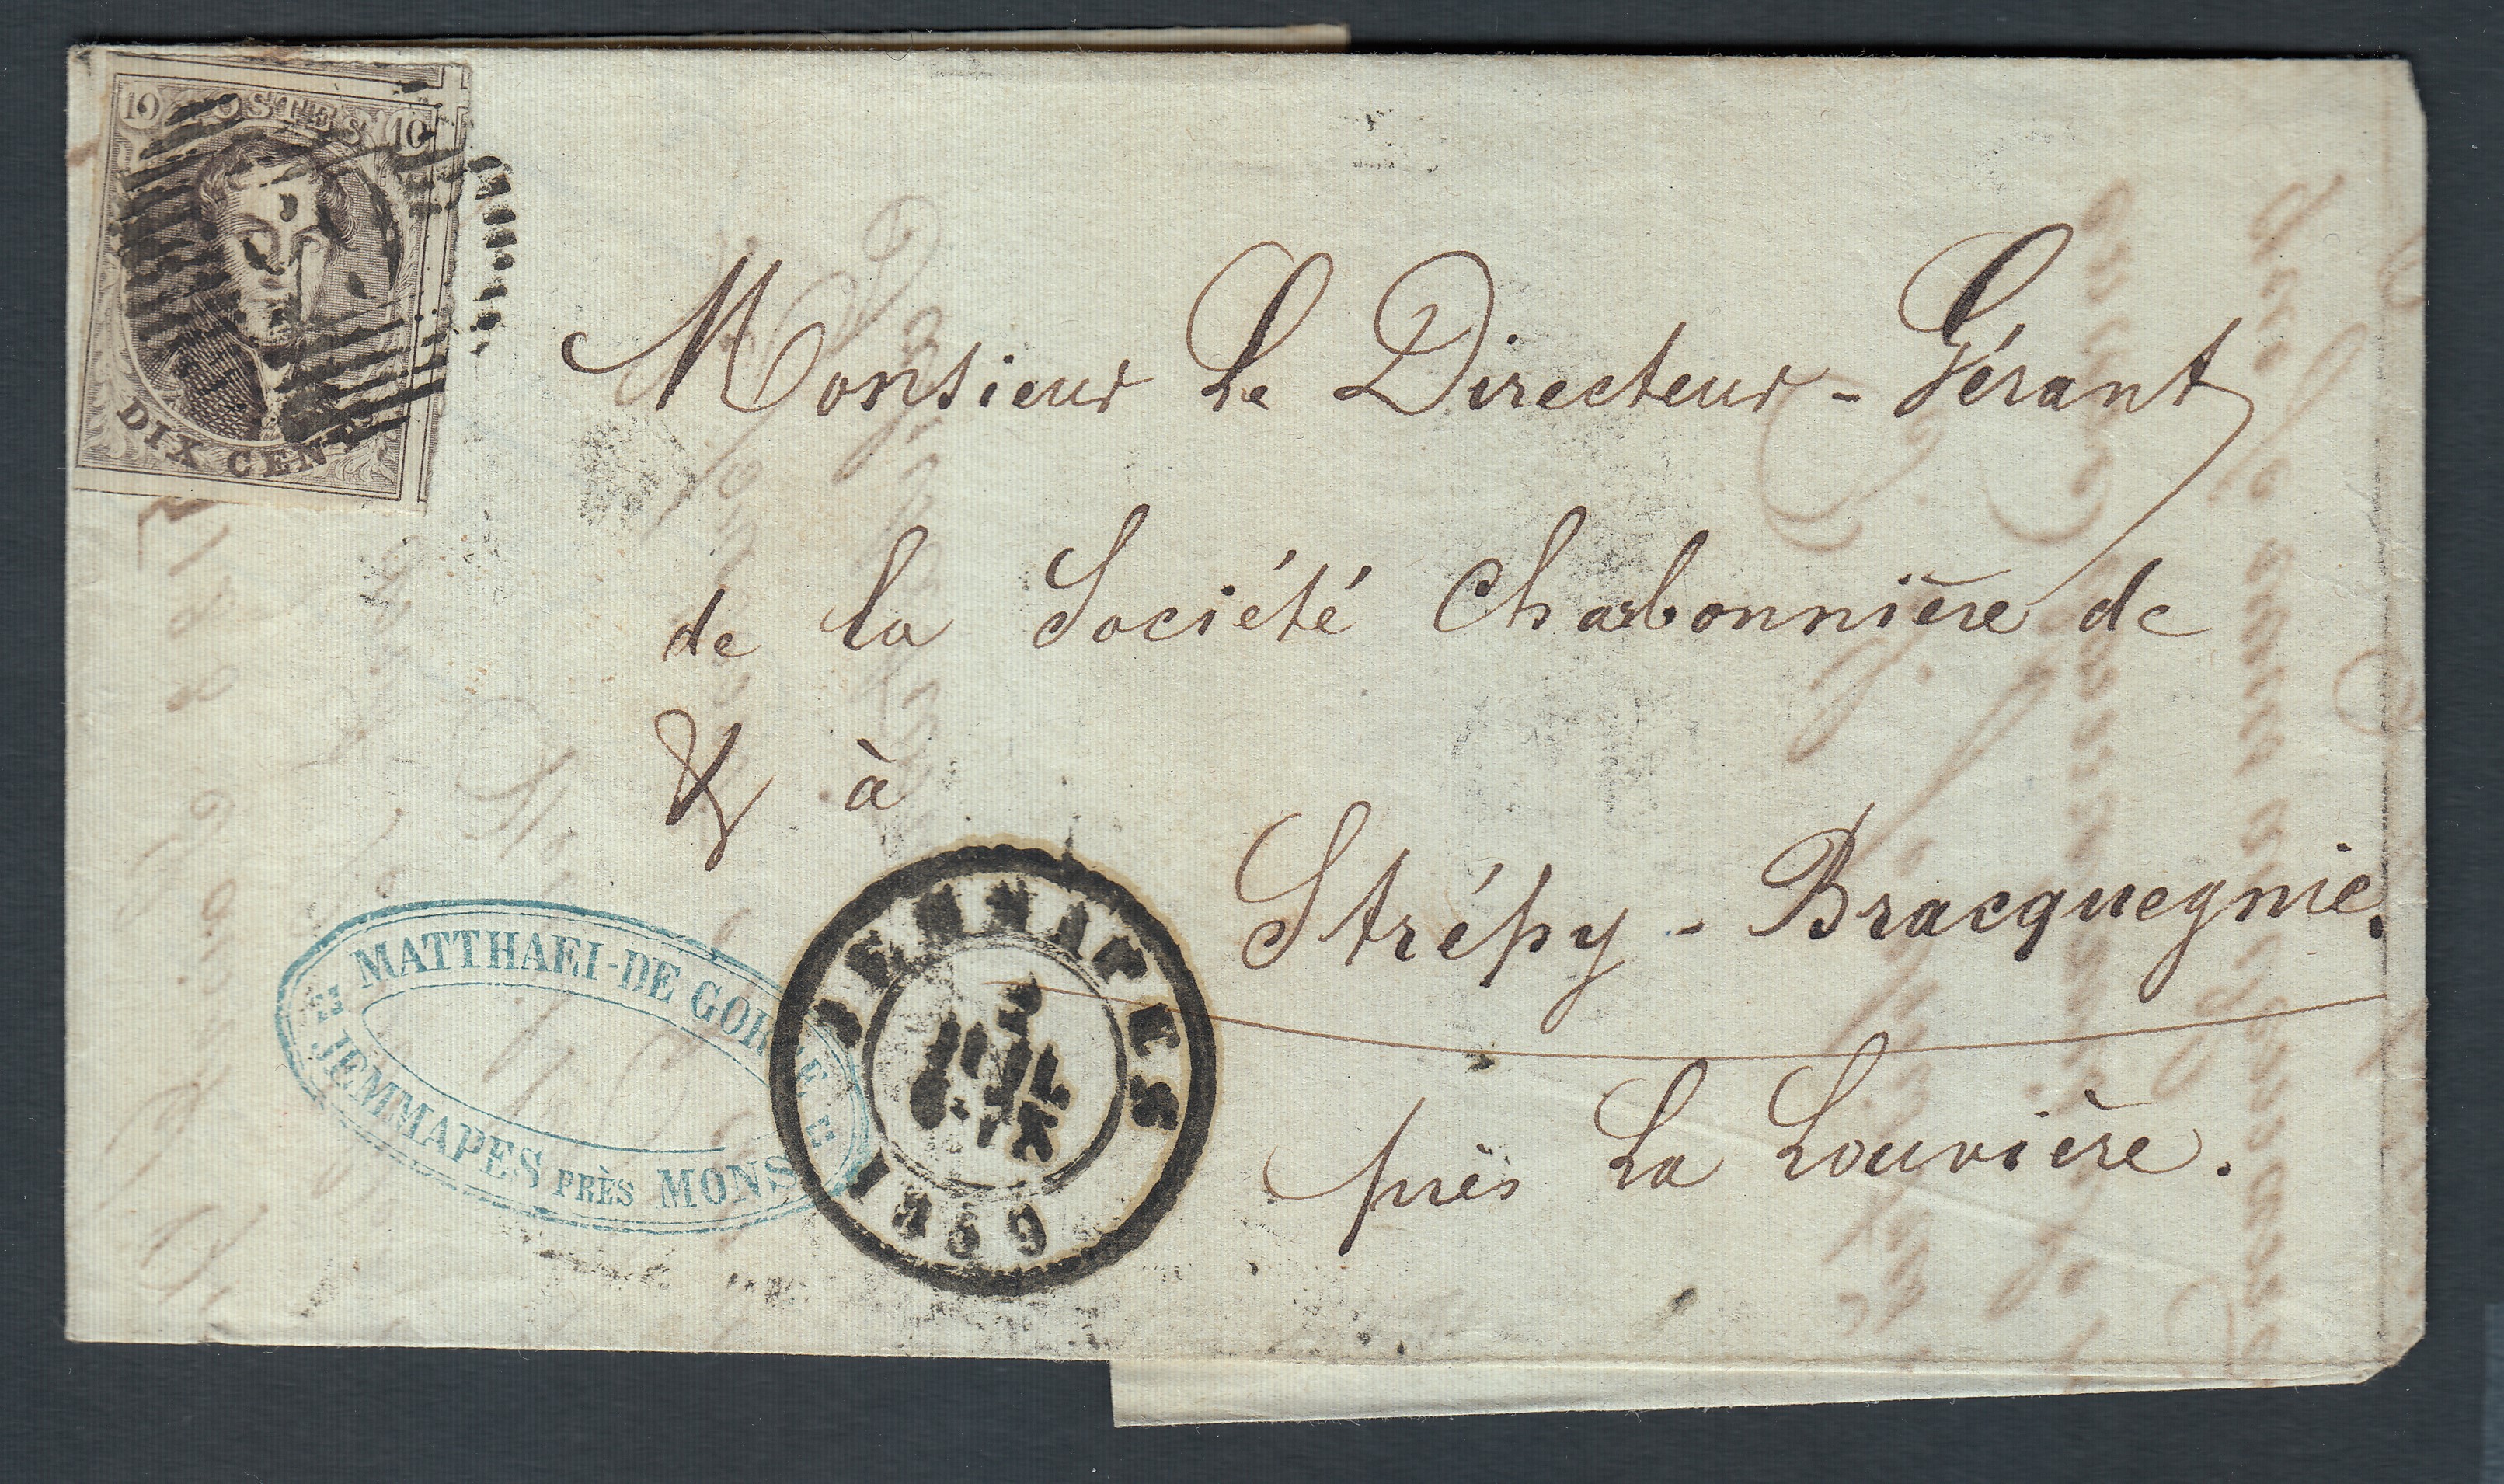 10 POSTES 10
DIX CENT
Monsieur Le Directeur-Gérant
de la Société Charbonnière de
& à
Strépy-Bracquegnie.
près La Louvière.
MATTHAEI-DE GORGE
JEMMAPES PRÈS MONS
JEMMAPES
JUIL
1859